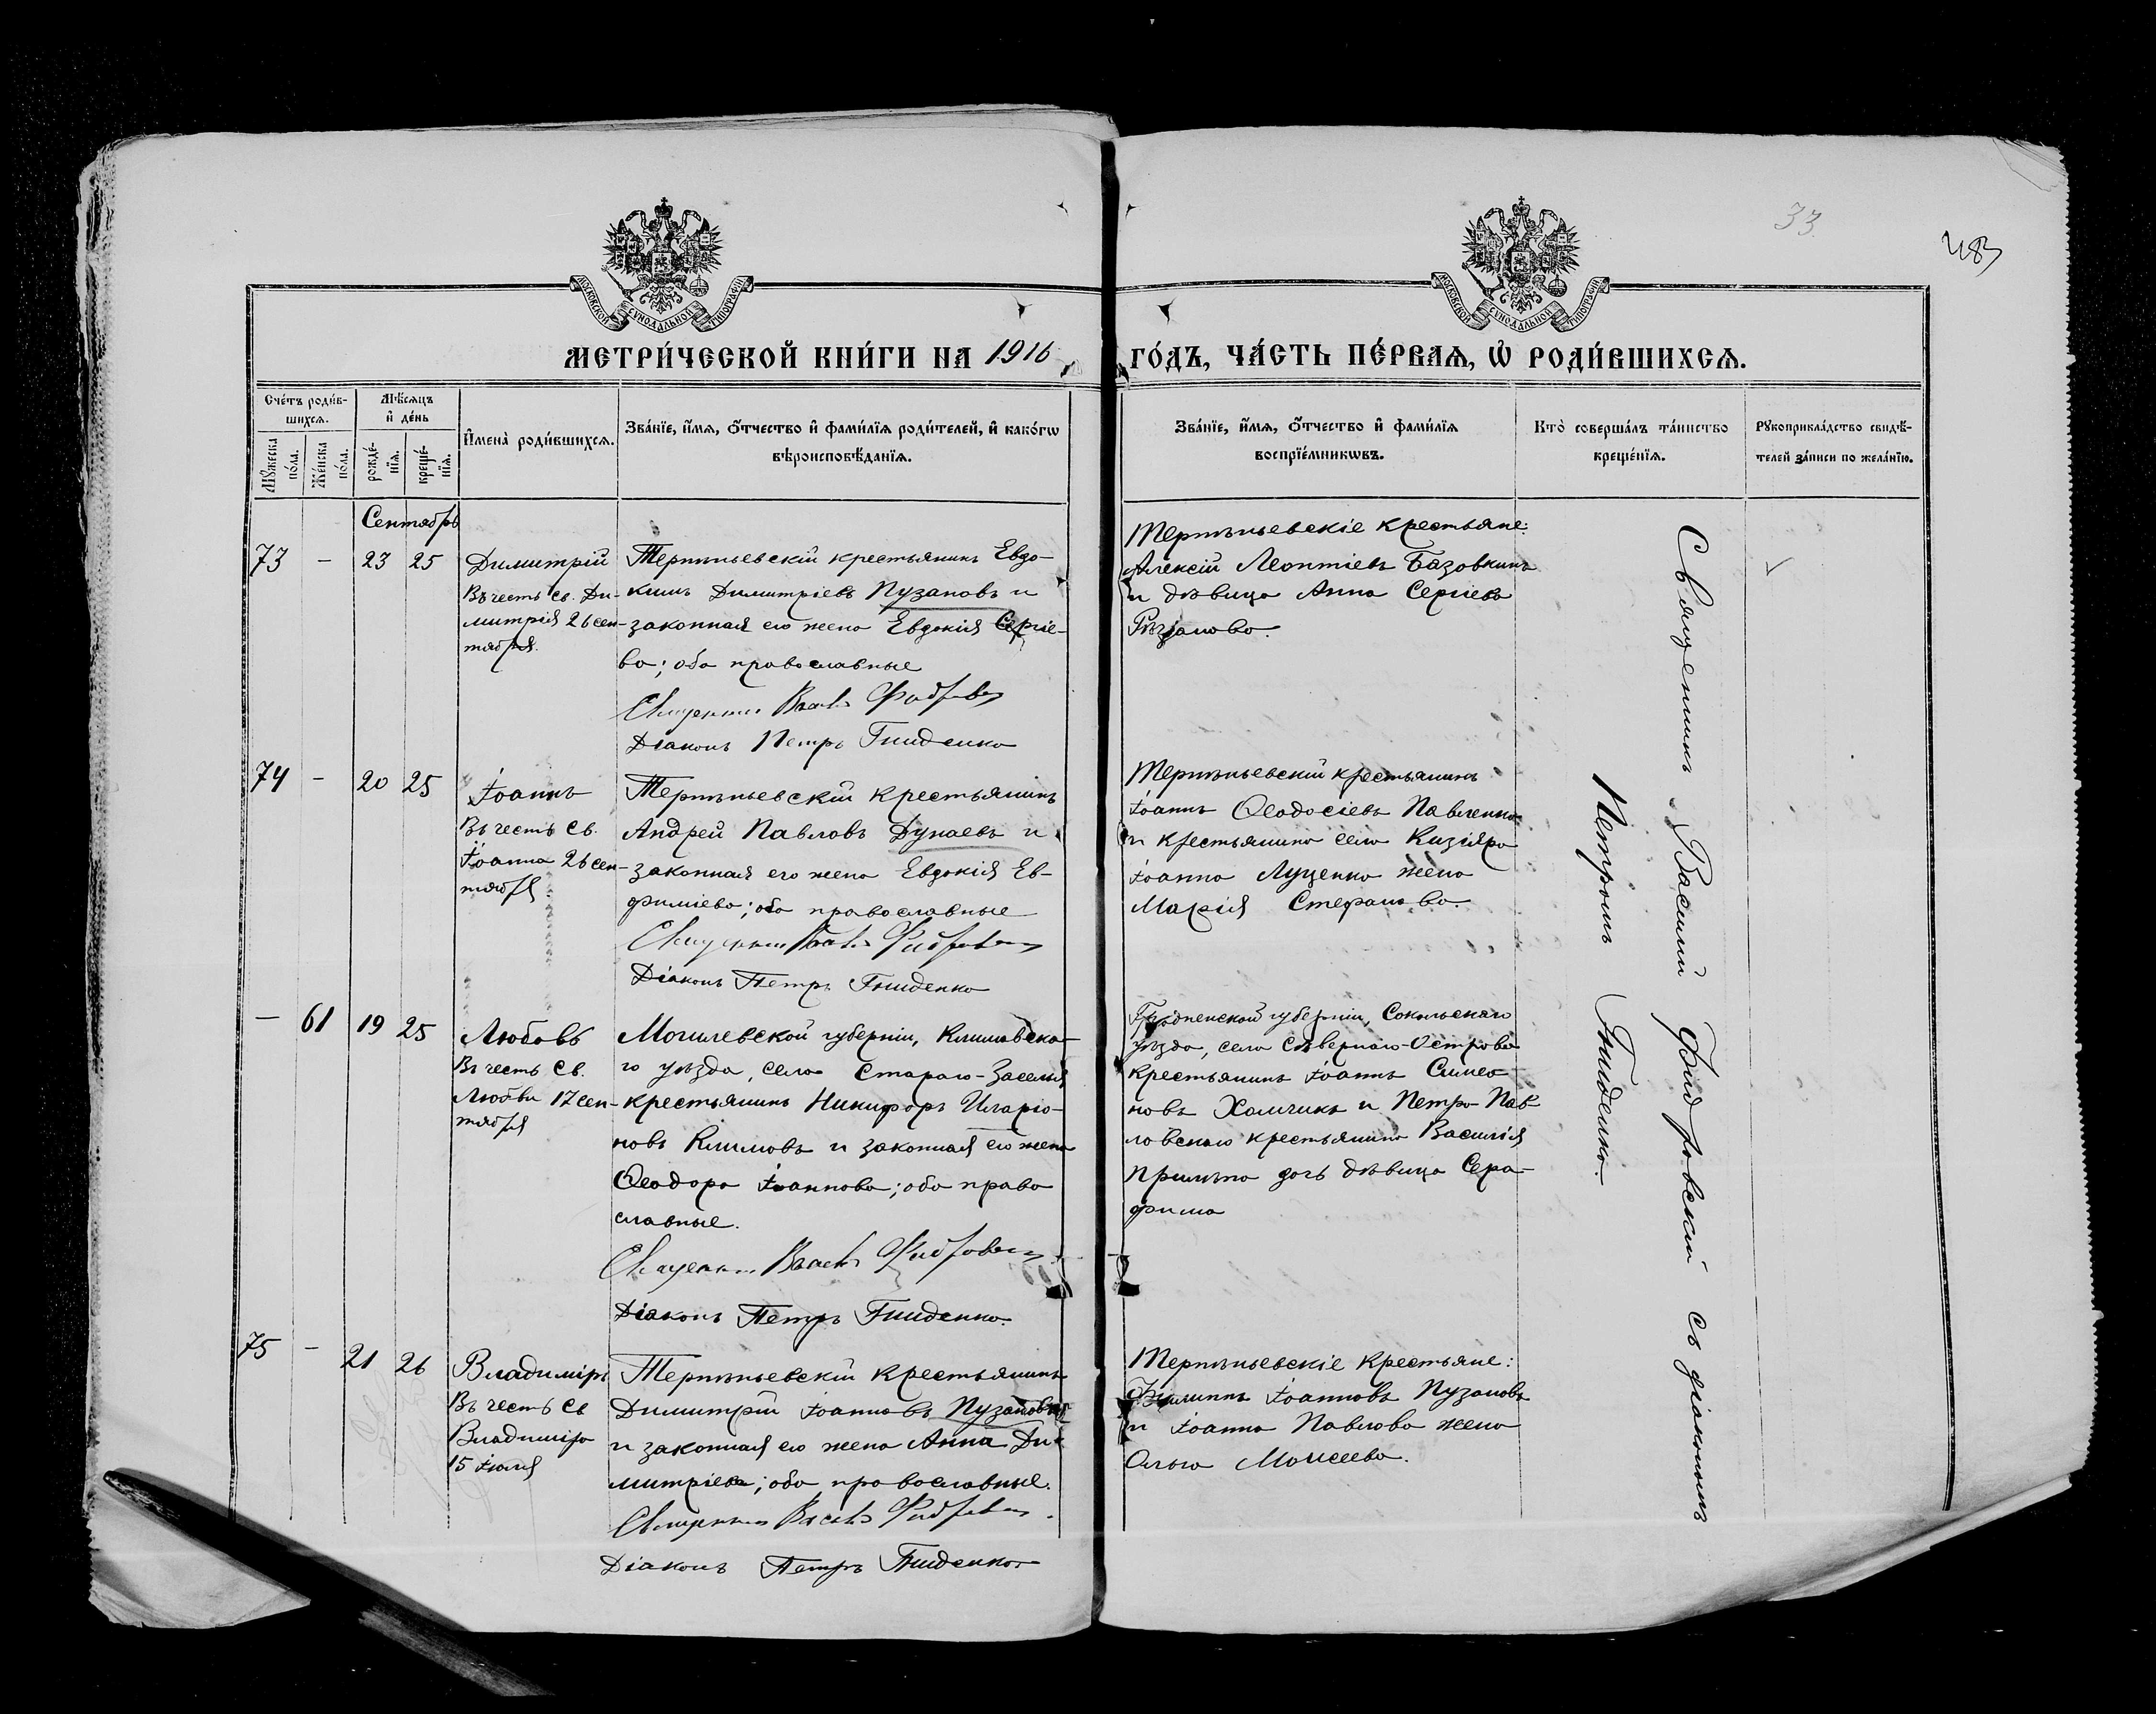 33
483
МОСКОВСКОЙ СѴНОДАЛЬНОЙ ТИПОГРАФІИ
МОСКОВСКОЙ СѴНОДАЛЬНОЙ ТИПОГРАФІИ
МЕТРИ́ЧЕСКОЙ КНИ́ГИ НА 1916
ГО́ДЪ, ЧА́СТЬ ПЕ́РВАѦ, Ѡ РОДИ́ВШИХСѦ.
Сче́тъ роди́в-
шихсѧ.
Мꙋжеска
по́ла.
Же́нска
по́ла.
Мѣ́сѧцъ
и҆ де́нь
рожде́-
нїѧ.
креще́-
нїѧ.
И҆мена̀ роди́вшихсѧ.
Зва́нїе, и҆́мѧ, о҆́тчество и҆ фами́лїѧ роди́телей, и҆ како́гѡ
вѣроисповѣ́данїѧ.
Зва́нїе, и҆́мѧ, о҆́тчество и҆ фами́лїѧ
воспрїе́мникѡвъ.
Кто̀ соверша́лъ та́инство
креще́нїѧ.
Рꙋкоприкла́дство свидѣ́-
телей за́писи по жела́нїю.
Сентябрь
73 – 23 25
Димитрій
Въ честь св. Ди-
митрія 26 сен-
тября.
Терпѣньевскій крестьянинъ Евдо-
кимъ Димитріевъ Пузановъ и
законная его жена Евдокія Сергіе-
ва; оба православные
Священникъ Васил Фидровск
Діаконъ Петръ Гниденко
Терпѣньевскіе крестьяне:
Алексій Леонтіевъ Базовкинъ
и дѣвица Анна Сергіева
Рѣзанова.
74 – 20 25
Іоаннъ
Въ честь св.
Іоанна 26 сен-
тября
Терпѣньевскій крестьянинъ
Андрей Павловъ Дунаевъ и
законная его жена Евдокія Ев-
фиміева; оба православные
Священникъ Васил Фидровск
Діаконъ Петръ Гниденко
Терпѣньевскій крестьянинъ
Іоаннъ Ѳеодосіевъ Павленко
и крестьянина села Кизіяра
Іоанна Луценко жена
Марія Стефанова.
– 61 19 25
Любовь
Въ честь св.
Любви 17 сен-
тября
Могилевской губерніи, Климовска-
го уѣзда, села Стараго-Заселья
крестьянинъ Никифоръ Иларіо-
новъ Климовъ и законная его жена
Ѳеодора Іоаннова; оба право
славные.
Священникъ Васил Фидровск
Діаконъ Петръ Гниденко.
Гродненской губерніи, Сокольскаго
уѣзда, села Сѣвернаго-Острова
крестьянинъ Іоаннъ Симео-
новъ Хомчикъ и Петро-Пав
ловскаго крестьянина Василія
дочь дѣвица Сера-
фима
75 – 21 26
Владиміръ
Въ честь св
Владиміра
15 Іюля
Терпѣньевскій крестьянинъ
Димитрій Іоанновъ Пузановъ
и законная его жена Анна Ди-
митріева; оба православные.
Священникъ Васил Фидровск
Діаконъ Петръ Гниденко
Терпѣньевскіе крестьяне:
Филиппъ Іоанновъ Пузановъ
и Іоанна Павлова жена
Ольга Моисеева.
Священникъ Василій Фидровскій съ діакономъ
Петромъ Гниденко.